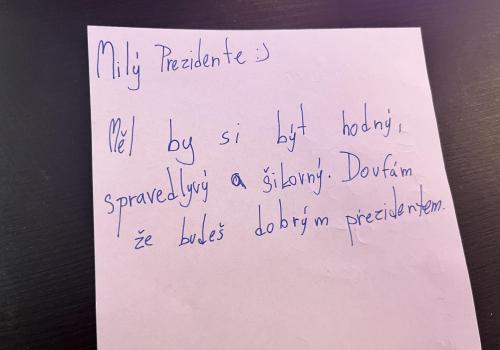 Milý Prezidente :)
Měl by si být hodný,
spravedlyvý a šikovný. Doufám
že budeš dobrým prezidentem.